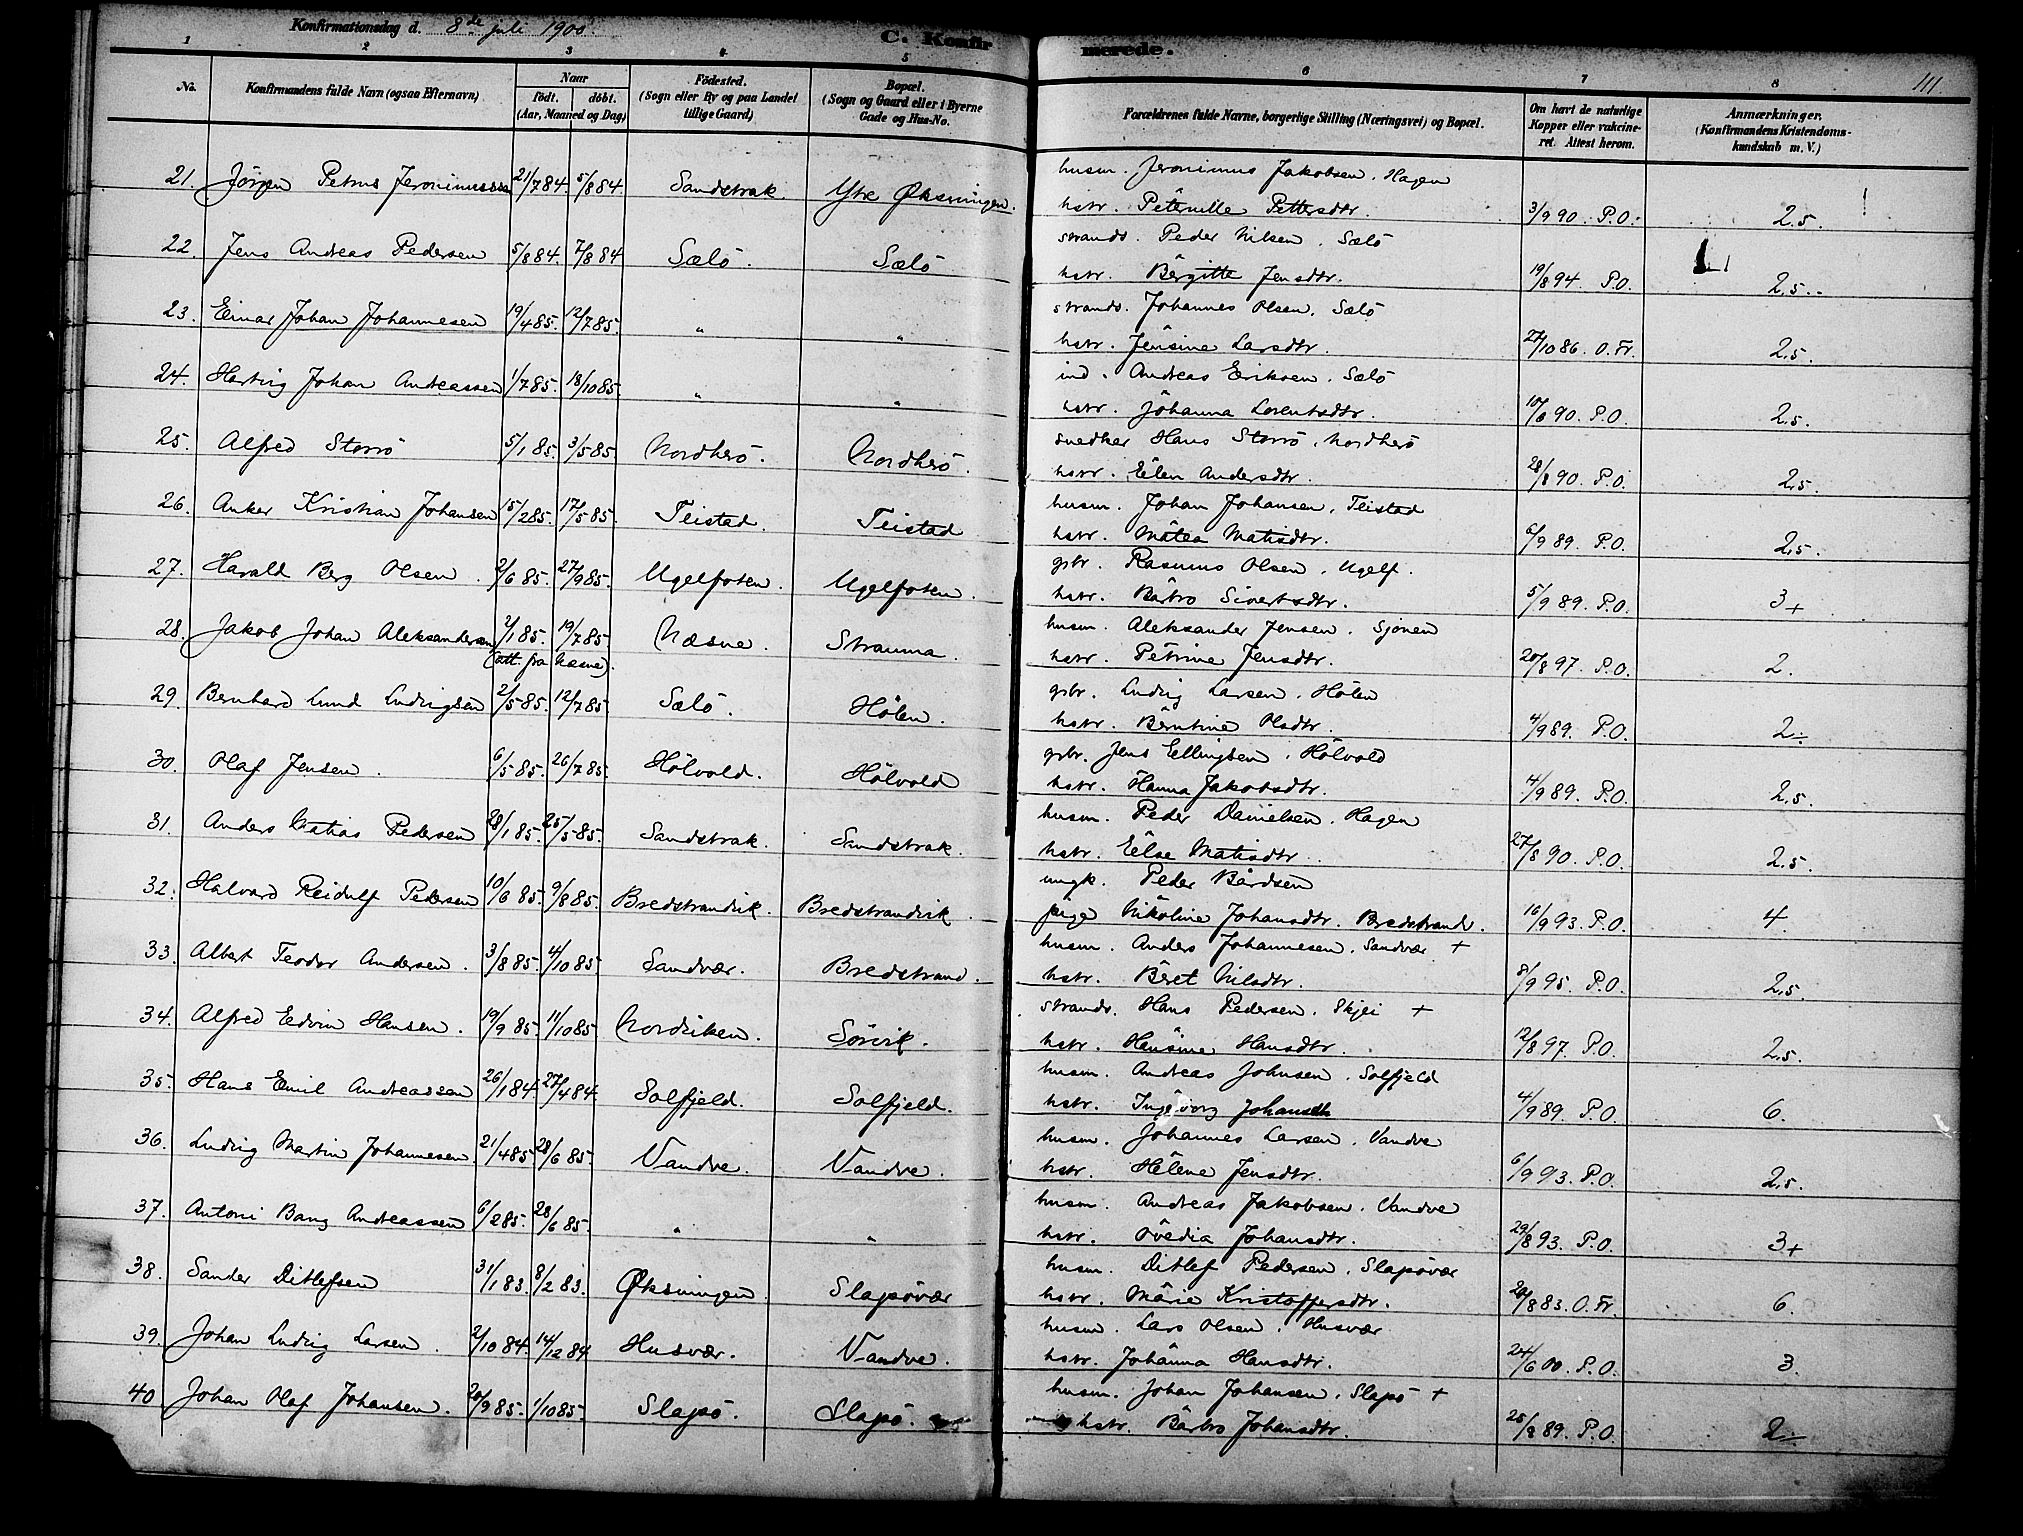 Konfirmationsdag d. 8de juli 1900.
C. Konfir merede.
111
1 2 3 4 5 6 7 8
No. Konfirmandens fulde Navn (ogsaa Efternavn) Naar født. døbt. (Aar, Maaned og Dag) Fødested. (Sogn eller By og paa Landet tillige Gaard) Bopæl. (Sogn og Gaard eller i Byerne Gade og Hus-No. Forældrenes fulde Navne, borgerlige Stilling (Næringsvei) og Bopæl. Om havt de naturlige Kopper eller vakcineret. Attest herom. Anmærkninger. (Konfirmandens Kristendomskundskab m. V.)
husm. Jeronimus Jakobsen. Hagen
21. Jørgen Petrus Jeronimussen 21/7 84. 5/8 84. Sandstrak. Ytre Øksningen. hstr. Peternille Pettersdtr. 3/9 90. P.O. 2,5.
strands. Peder Nilsen. Sælø
22. Jens Andreas Pedersen 5/8 84. 7/8 84 Sælø. Sælø hstr. Bergitte Jensdtr. 19/8 94. P.O. 2,5.
strands. Johannes Olsen. Sælø
23. Einar Johan Johannesen 19/4 85. 12/7 85. " " hstr. Jensine Larsdtr. 27/10 86. O.Fr. 2,5.
ind. Andreas Eriksen. Sælø
24. Hartvig Johan Andreassen 1/7 85. 18/10 85. " " hstr. Johanna Lorentsdtr. 10/6 90. P.O. 2,5.
snedker Hans Storrø, Nordherø
25. Alfred Storrø 5/1 85. 3/5 85 Nordherø. Nordherø. hstr. Elen Andersdtr. 28/8 90. P.O. 2,5.
husm. Johan Johansen, Teistad
26. Anker Kristian Johansen 15/2 85. 17/5 85. Teistad. Teistad hstr. Matea Matisdtr. 6/9 89. P.O. 2,5.
gbr. Rasmus Olsen, Ugelf.
27. Harald Berg Olsen. 2/6 85. 27/9 85. Ugelfoten. Ugelfoten. hstr. Barbro Sivertsdtr. 5/9 89. P.O. 3+
husm. Aleksander Jensen. Sjonen
28. Jakob Johan Aleksandersen 2/1 85. 19/7 85 Næsne Strauma. hstr. Petrine Jensdtr. 20/8 97. P.O. 2.
(att. fra Næsne).
gbr. Ludvig Larsen. Hølen
29. Bernhard Lund Ludvigsen 2/5 85. 12/7 85 Sælø. Hølen. hstr. Berntine Olsdtr. 4/9 89. P.O. 2÷
gbr. Jens Ellingsen. Hølvold
30. Olaf Jensen. 6/5 85. 26/7 85. Hølvold. Hølvold hstr. Hanna Jakobsdtr. 4/9 89. P.O. 2,5.
husm. Peder Danielsen. Hagen
31. Anders Matias Pedersen 28/1 85. 25/5 85. Sandstrak. Sandstrak. hstr. Else Matisdtr. 27/8 90. P.O. 2,5.
ungk. Peder Bårdsen
32. Halvard Reidulf Pedersen 10/6 85. 9/8 85. Bredstrandvik. Bredstrandvik. pige Nikoline Johansdtr. Bredstrand. 16/9 93. P.O. 4.
husm. Anders Johannesen. Sandvær +
33. Albert Teodor Andersen. 3/8 85. 4/10 85 Sandvær. Bredstrand. hstr. Beret Nilsdtr. 8/9 95. P.O. 2,5.
strands. Hans Pedersen. Skjei +
34. Alfred Edvin Hansen. 19/9 85. 11/10 85 Nordviken. Sørvik. hstr. Hansine Hansdtr. 12/8 97. P.O. 2,5.
husm. Andreas Johnsen. Solfjeld
35. Hans Emil Andreassen 26/1 84. 27/4 84. Solfjeld. Solfjeld. hstr. Ingeborg Johansdtr 4/9 89. P.O. 6.
husm. Johannes Larsen. Vandve
36. Ludvig Martin Johannesen. 21/4 85. 28/6 85. Vandve. Vandve. hstr. Helene Jensdtr. 6/9 93. P.O. 2,5.
husm. Andreas Jakobsen. Vandve
37. Antoni Bang Andreassen 6/2 85. 28/6 85. " " hstr. Ovedia Johansdtr. 29/8 93. P.O. 3+
husm. Ditlef Pedersen. Slapøvær
38. Sander Ditlefsen 31/1 83. 8/2 83. Øksningen. Slapøvær hstr. Marie Kristoffersdtr. 20/8 83. O.Fr. 6.
husm. Lars Olsen. Husvær
39. Johan Ludvig Larsen. 2/10 84. 14/12 84 Husvær. Vandve. hstr. Johanna Hansdtr. 24/6 00. P.O. 3.
husm. Johan Johansen. Slapø +
40 Johan Olaf Johansen. 20/9 85. 1/10 85. Slapø. Slapø. hstr. Barbro Johansdtr. 25/8 89. P.O. 2÷